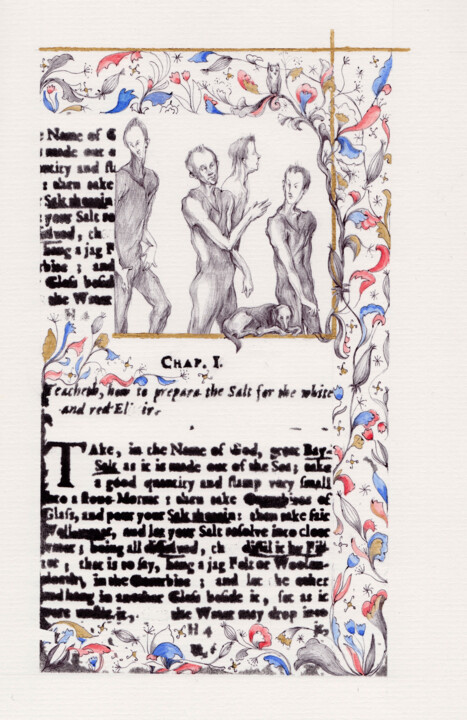 e Name of G
made out o
ntity and fl
: then take
Salt therein
your Salt
, th
hang a jag
rbine ; and
Glass besid
the Water
H 4
CHAP. I.
Teacheth, how to prepare the Salt for the white
and red El ir.
TAke, in the Name of God, great Bay-
Salt as it is made out of the Sea; take
a good quantity and stamp very small
into a stone Mortar : then take of
Glass, and pour your Salt therein : then take fair
and let your Salt resolve into clear
; being all , th
; that is to say, hang a jag Felt or Woolen-
in the ; and let the other
end hang in another Glass beside it, for as it
were under it, the Water may drop into
H 4 it,